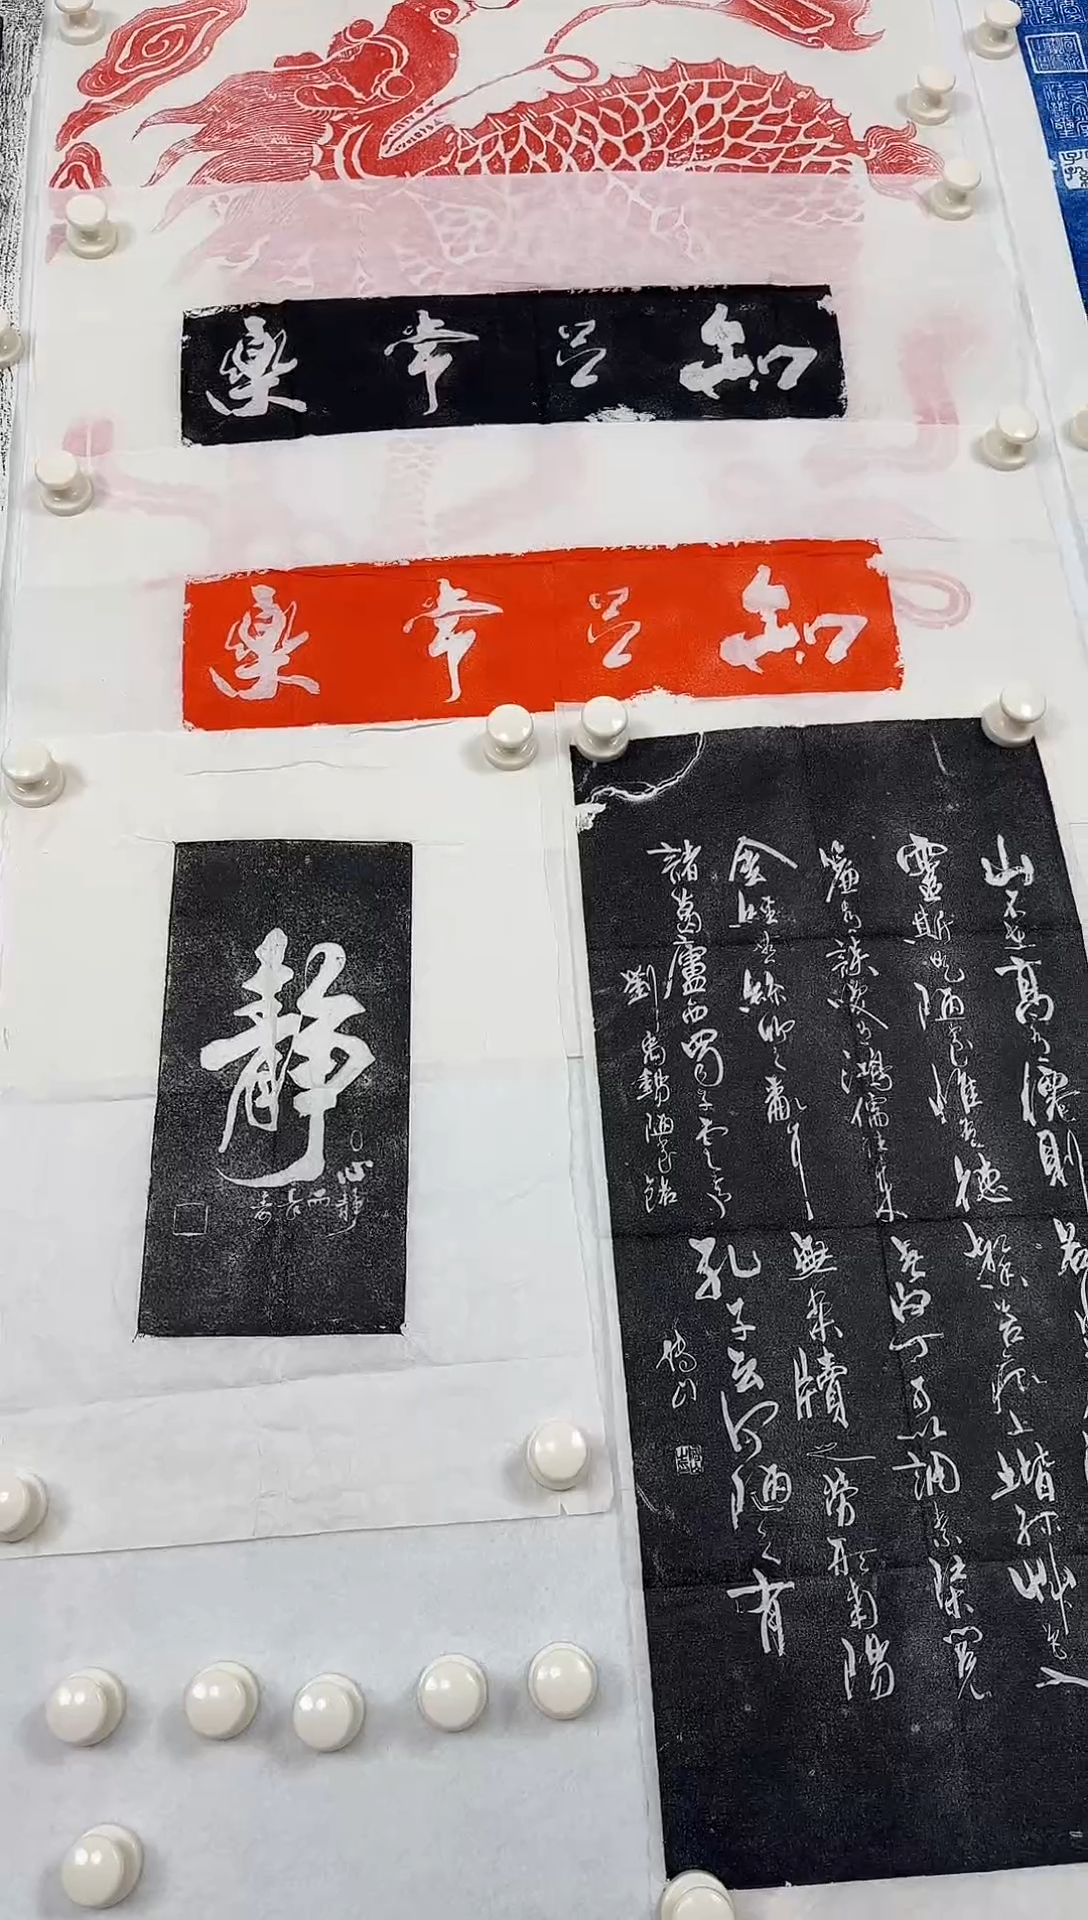 知足常樂
知足常樂
靜
心靜而長壽
山不在高有僊則
靈斯是陋室惟吾德馨苔痕上階綠艸色入
簾青談笑有鴻儒往來無白丁可以調素琴閱
金經無絲竹之亂耳無案牘之勞形南陽
諸葛廬西蜀子雲亭孔子云何陋之有
劉禹錫陋室銘 傅山